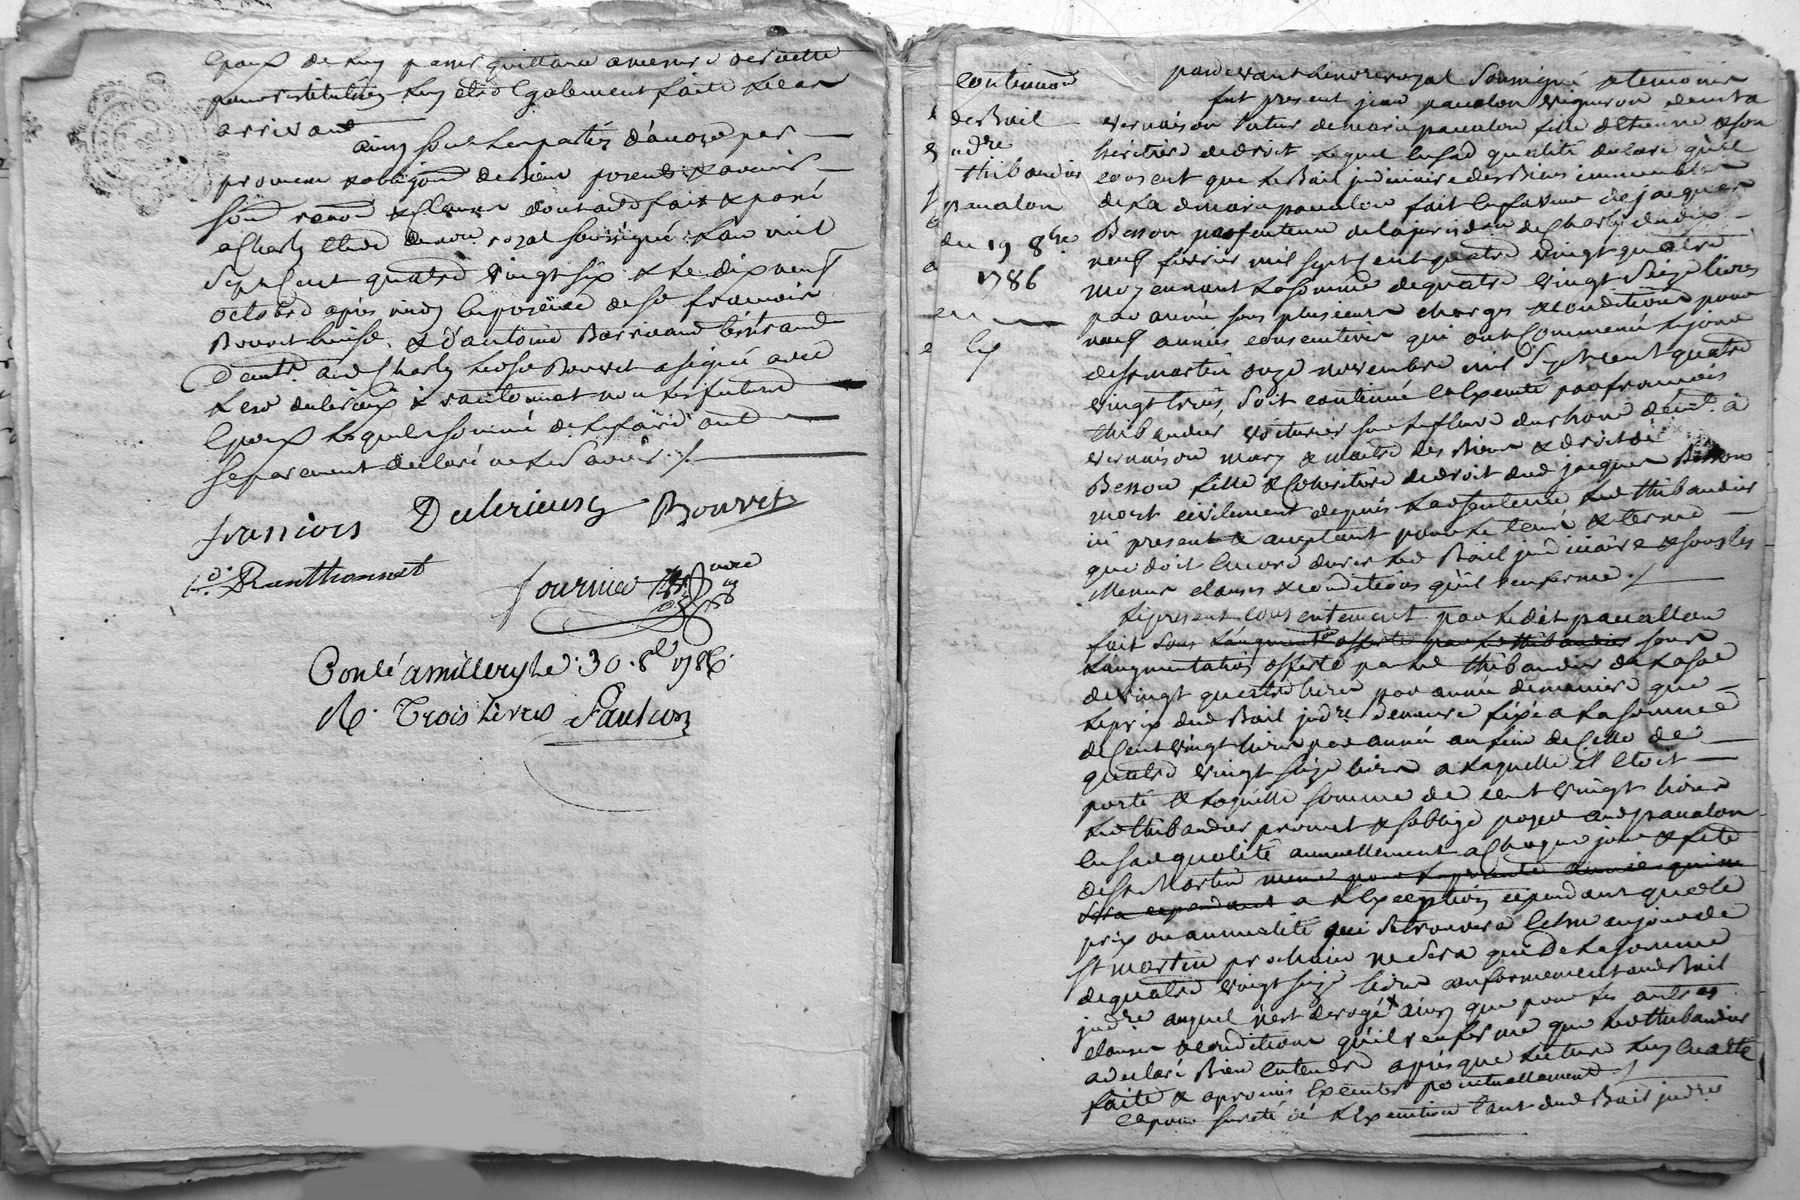 Epoux de luy passer quittance a mesure
pour restitution luy etre Egalement faite le cas
arrivant
ainsy sont les parties d'accord par
promesse obligon de Biens presents & avenir
soumn renon & Clauses dont acte fait & passé
a Charly Etude du nore royal soussigné l'an mil
Sept Cent quatre vingt six & le dix neuf
octobre après midy En presence de sr francois
Bouvet & d'antoine Barricand tisserand
demt aud Charly le sr Bouvet a signé avec
& non la future
Epouse lesquels sommé de le faire ont
separement declaré ne le savoir ./.
francois Dulerieux Bouvet
fournier
Conlé a millery le 30 8e 1786
R. Trois livres Paulcon
continuon
de Bail
judre
thibaudier
pavalon
du 19 8bre
1786
par devant le nore royal soussigné & temoins
fut present jean pavalon vigneron demt a
vernaison tuteur de marie pavalon fille d'Etienne & son
héritière de droit lequel en sad qualité declare qu'il
consent que le Bail judiciaire des Biens immeubles
de lad marie pavalon fait en faveur de jacques
Besson par sentence de la jurisdon de Charly du dix
neuf fevrier mil sept cent quatre vingt quatre
moyennant la somme de quatre vingt seize livres
par année sous plusieurs charges & conditions pour
neuf années consecutives qui ont Commencé le jour
de st martin onze novembre mil sept cent quatre
vingt trois, soit continué & Executé par francois
thibaudier voiturier sur le fleuve du rhone demt a
vernaison mary & maitre des Biens & droits de
Besson fille & Coheritière de droit dud jacques Besson
mort civilement depuis lad sentence led thibaudier
ici present & acceptant pour le tems & terme
que doit Encore durer led Bail judiciaire & sous les
Memes clauses & conditions qu'il renferme ./.
le present consentement par ledit pavallon
fait sous l'augmenton offerte par led thibaudier sous
l'augmentation offerte par led thibaudier de la somme
de vingt quatre livres par année de maniere que
le prix dud Bail judre Demeure fixé a la somme
de Cent vingt livres par année au lieu de Celle de
quatre vingt seize livres a laquelle il etoit
porté & laquelle somme de cent vingt livres
led thibaudier promet & s'oblige payer aud pavalon
En sad qualité annuellement a Chaque jour & fete
de st Martin meme pour la presente année qui ne
sera cependant a l'Exception cependant que le
prix ou annuité qui se trouvera Echu au jour de
st martin prochain ne sera que de la somme
de quatre vingt seize livres conformement aud Bail
judre auquel n'est derogé ainsy que pour les autres
clauses & conditions qu'il renferme que led thibaudier
a declaré Bien Entendre après que lecture luy En a Eté
faite & a promis Executer ponctuellement ./.
Et pour sureté de l'Execution tant dud Bail judre